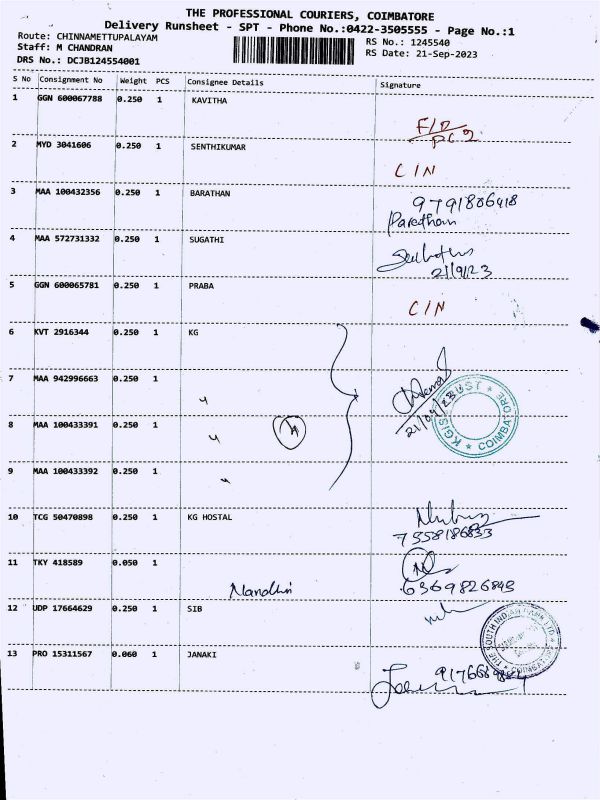 THE PROFESSIONAL COURIERS, COIMBATORE
Delivery Runsheet - SPT - Phone No.:0422-3505555 - Page No.:1
Route: CHINNAMETTUPALAYAM
Staff: M CHANDRAN
DRS No.: DCJB124554001
RS No.: 1245540
RS Date: 21-Sep-2023
S No Consignment No Weight PCS Consignee Details Signature
1 GGN 600067788 0.250 1 KAVITHA
F/D
PC2
2 MYD 3041606 0.250 1 SENTHIKUMAR
C/N
3 MAA 100432356 0.250 1 BARATHAN
9791806418
4 MAA 572731332 0.250 1 SUGATHI
21/9/23
5 GGN 600065781 0.250 1 PRABA
C/N
6 KVT 2916344 0.250 1 KG
7 MAA 942996663 0.250 1
21/09/23
KGISL
COIMBATORE
8 MAA 100433391 0.250 1
9 MAA 100433392 0.250 1
10 TCG 50470898 0.250 1 KG HOSTAL
7558186833
11 TKY 418589 0.050 1
Nandhini
6369826843
12 UDP 17664629 0.250 1 SIB
THE SOUTH INDIAN BANK LTD
COIMBATORE
13 PRO 15311567 0.060 1 JANAKI